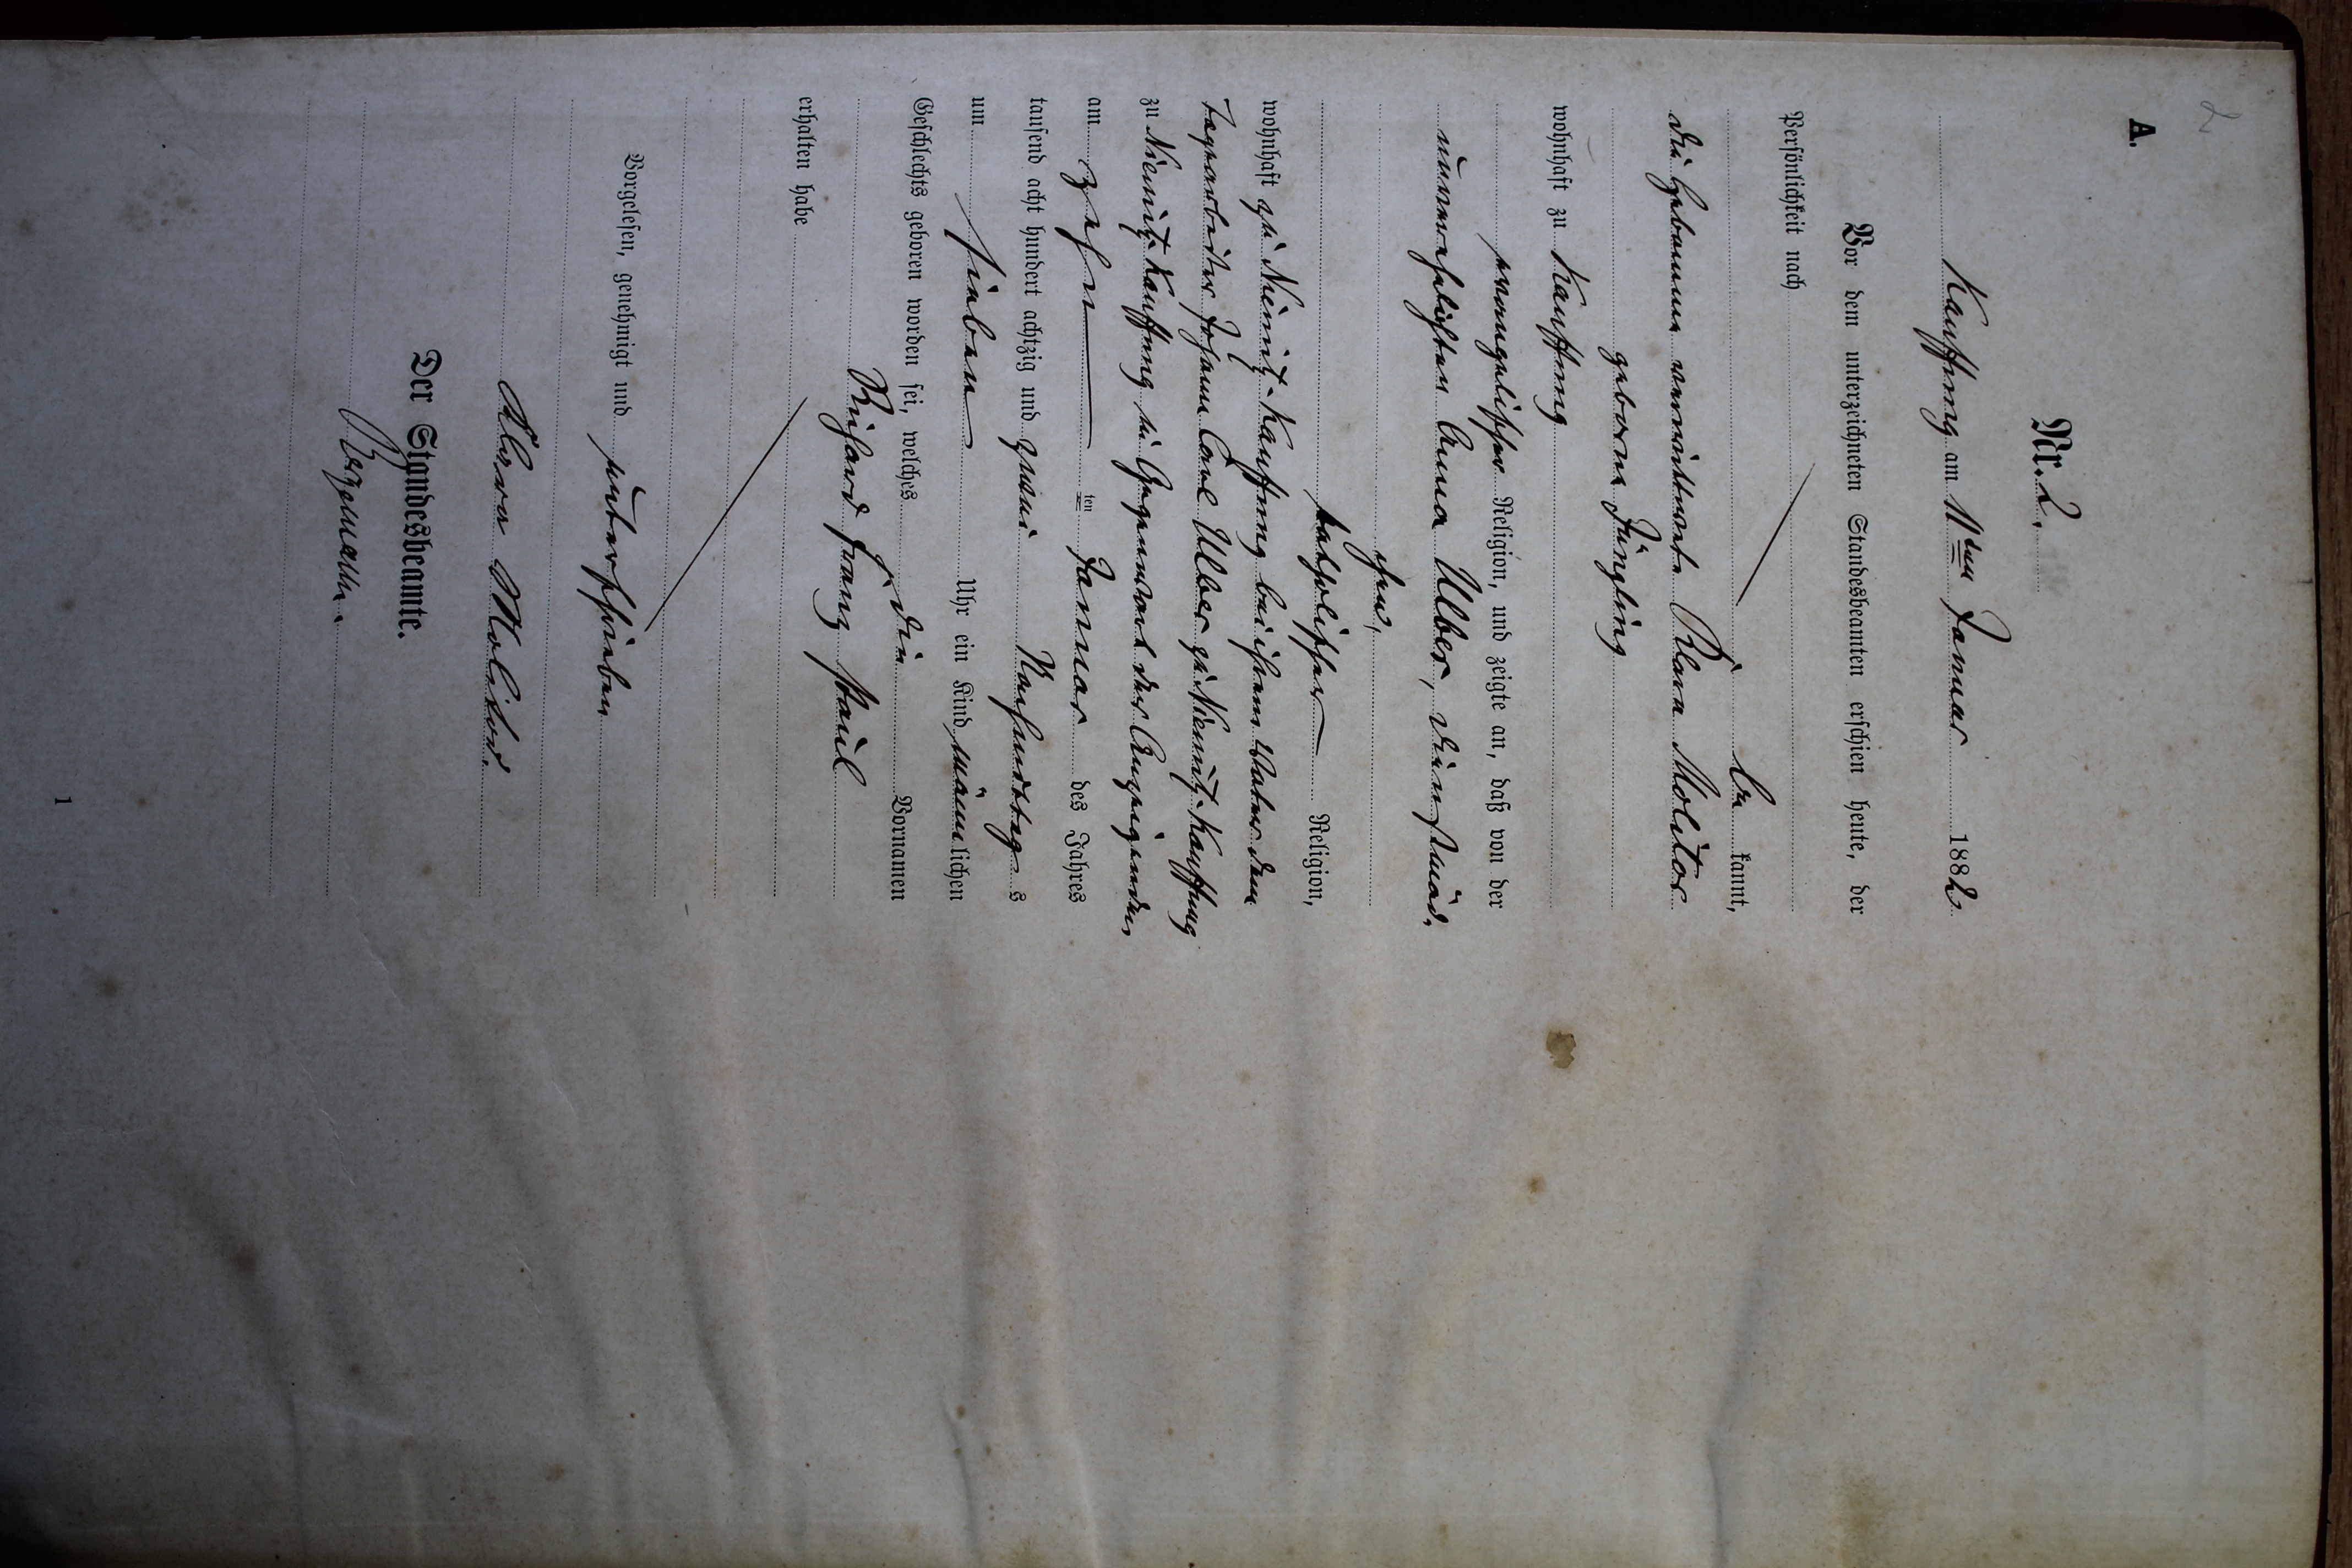 2
A.
Nr. 2.
Kauffung am 11ten Januar 1882
Vor dem unterzeichneten Standesbeamten erschien heute, der
Persönlichkeit nach
be kannt,
die Hebamme verwittwete Clara Molitor
geborne Jüngling
wohnhaft zu Kauffung
evangelischer Religion, und zeigte an, daß von der
unverehelichten Anna Ulber, Dienstmäd-
chen,
katholischer Religion,
wohnhaft zu Niemitz-Kauffung bei ihrem Vater dem
Tagearbeiter Johann Carl Ulber zu Niemitz-Kauffung
zu Niemitz-Kauffung in Gegenwart der Anzeigenden
am zehn ten Januar des Jahres
tausend acht hundert achtzig und zwei Nachmittag s
um sieben Uhr ein Kind männ lichen
Geschlechts geboren worden sei, welches die Vornamen
Richard Franz Paul
erhalten habe
Vorgelesen, genehmigt und unterschrieben
Clara Molitor.
Der Standesbeamte.
1